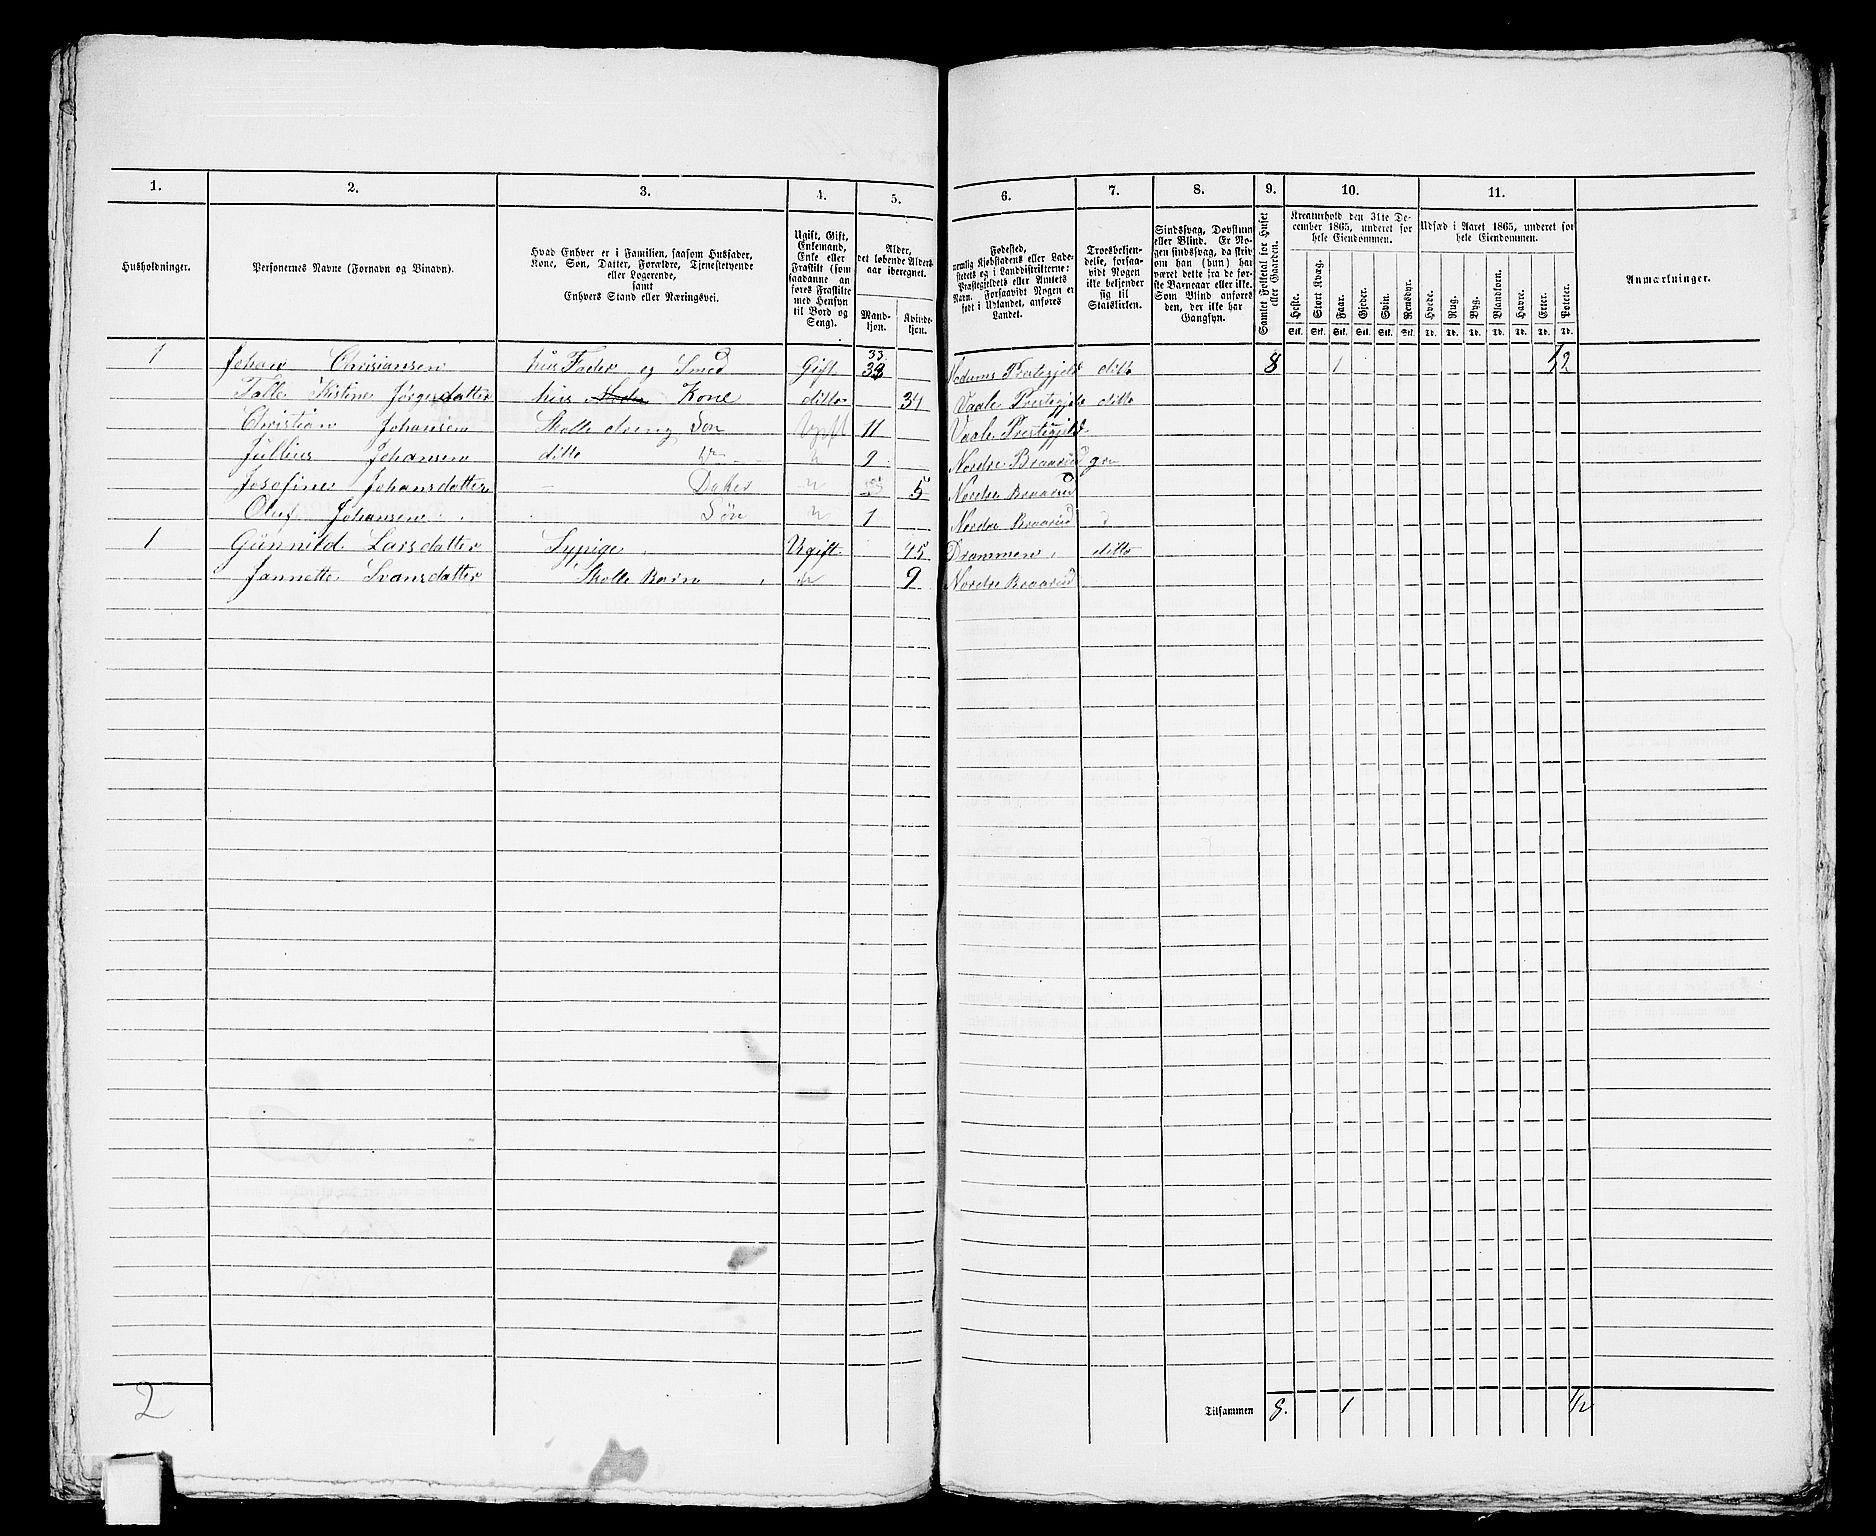 1. 2. 3. 4. 5. 6. 7. 8. 9. 10. 11.
Husholdninger.
Personernes Navne (Fornavn og Binavn).
Hvad Enhver er i Familien, saasom Husfader,
Kone, Søn, Datter, Forældre, Tjenestetyende
eller Logerende,
samt
Enhvers Stand eller Næringsvei.
Ugift, Gift,
Enkemand,
Enke eller
Fraskilt (som
saadanne an-
føres Fraskilte
med Hensyn
til Bord og
Seng).
Alder,
det løbende Alders-
aar iberegnet.
Mand-
kjøn.
Kvinde-
kjøn.
Fødested,
nemlig Kjøbstadens eller Lade-
stedets og i Landdistrikterne:
Præstegjeldets eller Amtets
Navn. Forsaavidt Nogen er
født i Udlandet, anføres
Landet.
Troesbekjen-
delse, forsaa-
vidt Nogen
ikke bekjender
sig til
Statskirken.
Sindssvag, Døvstum
eller Blind. Er No-
gen sindssvag, da skriv
om han (hun) har
været dette fra de før-
ste Barneaar eller ikke.
Som Blind anføres
den, der ikke har
Gangsyn.
Samlet Folketal for Huset
eller Gaarden.
Kreaturhold den 31te De-
cember 1865, underet for
hele Eiendommen.
Heste. Stort Kvæg. Faar. Gjeder. Svin. Rensdyr.
Stk. Stk. Stk. Stk. Stk. Stk.
Udsæd i Aaret 1865, underet for
hele Eiendommen.
Hvede. Rug. Byg. Blandkorn. Havre. Erter. Poteter.
Td. Td. Td. Td. Td. Td. Td.
Anmærkninger.
1 Johan Chrisiansen hus Fader og Smed Gift 33 ditto 8 1 1/2
Kistine Jørgensdatter hus Kone ditto 34 Vaale Prestegjeld ditto
Christian Johansen Skolle dreng Søn 11 Vaale Prestegjeld
Jullius Johansen ditto 9 Nordre Braarud
Josefine Johansdatter 5 Nordre Braarud
Oluf Johansen Søn 1 Nordre Braarud
1 Günnild Larsdatter Sypige Ugift 45 Drammen ditto
Jannette Svansdatter Skolle Barn 9 Nordre Braarud
2 Tilsammen 8. 1 1/2